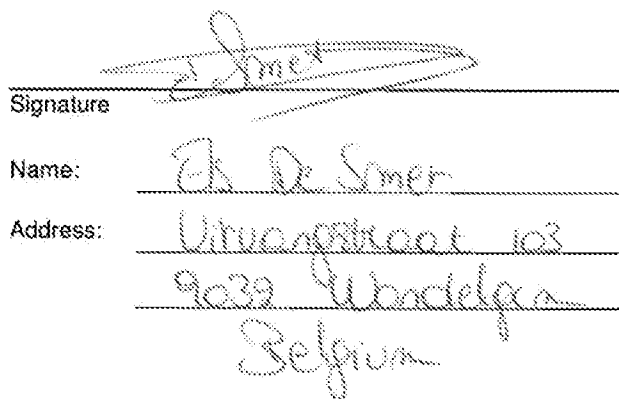 E Smet
Signature
Name: Els De Smet
Address: Uitvangstraat 103
9032 Wondelgem
Belgium